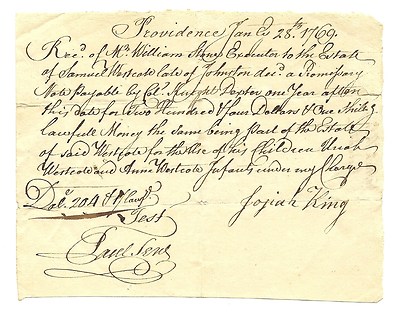 Providence Jan.y 28th 1769.
Rec.d of Mr William Executor to the Estate
of Samuel Westcote Late of Johnston dec.d a Promessary
Note Payable by Col. Knight Dexter one Year after
this date for Two Hundred & four Dollars & One Shilg
Lawfull Money the same being part of the Estate
of said Westcote for the Use of his Children Uriah
Westcote and Anne Westcote Infants under my Charge
Dol.s 204 &
Josiah King
Test
Paul